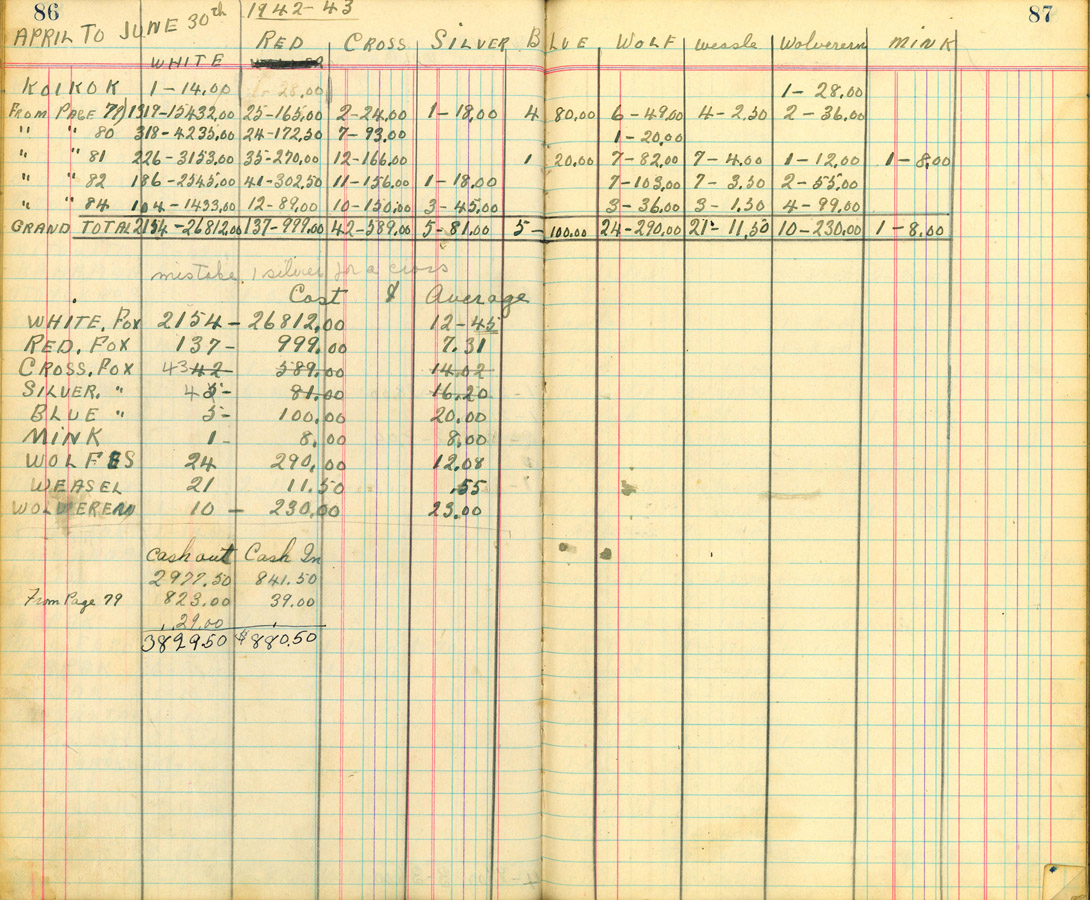 86 87
APRIL TO JUNE 30th 1942-43
WHITE RED CROSS SILVER BLUE WOLF Wessle Wolverern MINK
KOIKOK 1-14.00 1-28.00 1-28.00
FROM PAGE 79) 1319-15432.00 25-165.00 2-24.00 1-18.00 4 80.00 6-49.00 4-2.50 2-36.00
" " 80 318-4235.00 24-172.50 7-93.00 1-20.00
" " 81 226-3153.00 35-270.00 12-166.00 1 20.00 7-82.00 7-4.00 1-12.00 1-8.00
" " 82 186-2545.00 41-302.50 11-156.00 1-18.00 7-103.00 7-3.50 2-55.00
" " 84 104-1433.00 12-89.00 10-150.00 3-45.00 3-36.00 3-1.50 4-99.00
GRAND TOTAL 2154-26812.00 137-999.00 42-589.00 5-81.00 5-100.00 24-290.00 21-11.50 10-230.00 1-8.00
mistake, 1 silver for a cross
Cost $ Average
WHITE, FOX 2154-26812.00 12-45
RED, FOX 137- 999.00 7.31
CROSS, FOX 43 42- 589.00 14.02
SILVER, " 4 5- 81.00 16.20
BLUE " 5- 100.00 20.00
MINK 1- 8.00 8.00
WOLFES 24 290.00 12.08
WEASEL 21 11.50 .55
WOLVEREN 10- 230.00 23.00
Cash out Cash In
2977.50 841.50
From Page 79 823.00 39.00
29.00
3829.50 $880.50